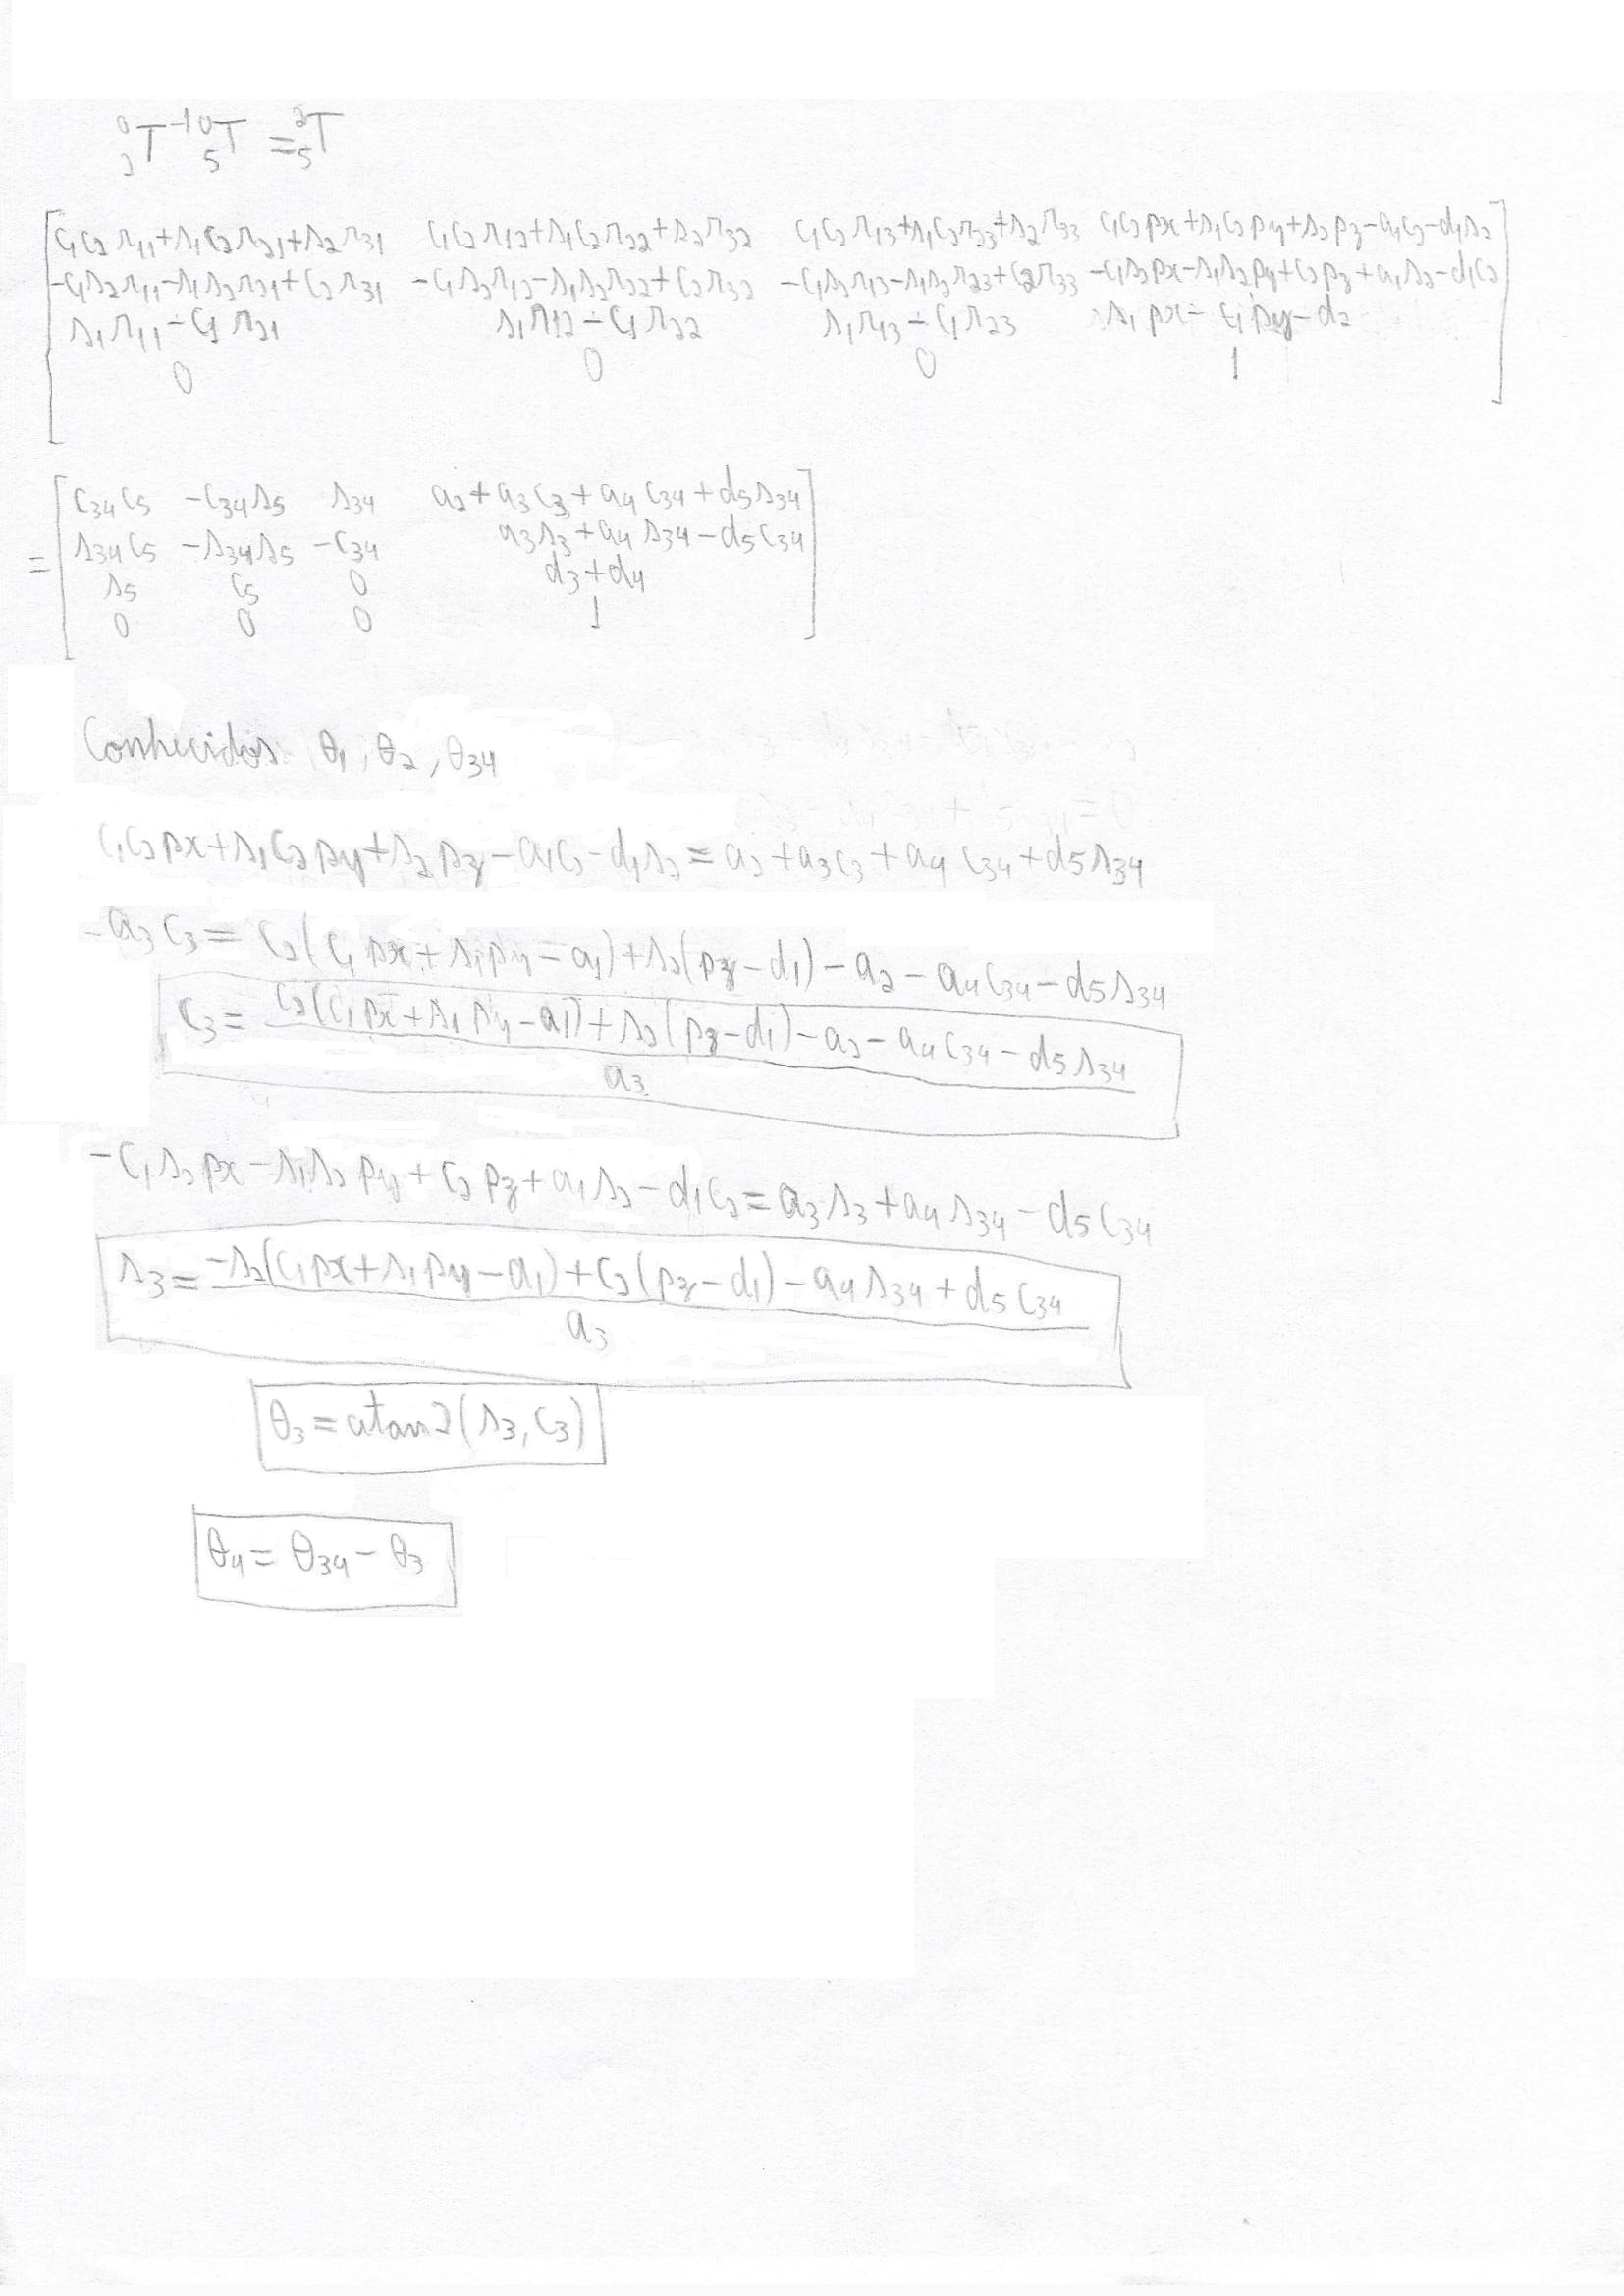 ⁰₂T⁻¹ ⁰₅T = ²₅T
c₁c₂r₁₁+s₁c₂r₂₁+s₂r₃₁  c₁c₂r₁₂+s₁c₂r₂₂+s₂r₃₂  c₁c₂r₁₃+s₁c₂r₂₃+s₂r₃₃  c₁c₂px+s₁c₂py+s₂pz-a₁c₂-d₁s₂
-c₁s₂r₁₁-s₁s₂r₂₁+c₂r₃₁  -c₁s₂r₁₂-s₁s₂r₂₂+c₂r₃₂  -c₁s₂r₁₃-s₁s₂r₂₃+c₂r₃₃  -c₁s₂px-s₁s₂py+c₂pz+a₁s₂-d₁c₂
s₁r₁₁-c₁r₂₁  s₁r₁₂-c₁r₂₂  s₁r₁₃-c₁r₂₃  s₁px-c₁py-d₂
0  0  0  1
c₃₄c₅  -c₃₄s₅  s₃₄  a₂+a₃c₃+a₄c₃₄+d₅s₃₄
= s₃₄c₅  -s₃₄s₅  -c₃₄  a₃s₃+a₄s₃₄-d₅c₃₄
s₅  c₅  0  d₃+d₄
0  0  0  1
Conhecidos θ₁, θ₂, θ₃₄
c₁c₂px+s₁c₂py+s₂pz-a₁c₂-d₁s₂=a₂+a₃c₃+a₄c₃₄+d₅s₃₄
-a₃c₃=c₂(c₁px+s₁py-a₁)+s₂(pz-d₁)-a₂-a₄c₃₄-d₅s₃₄
c₃= c₂(c₁px+s₁py-a₁)+s₂(pz-d₁)-a₂-a₄c₃₄-d₅s₃₄
a₃
-c₁s₂px-s₁s₂py+c₂pz+a₁s₂-d₁c₂=a₃s₃+a₄s₃₄-d₅c₃₄
s₃= -s₂(c₁px+s₁py-a₁)+c₂(pz-d₁)-a₄s₃₄+d₅c₃₄
a₃
θ₃=atan2(s₃,c₃)
θ₄=θ₃₄-θ₃